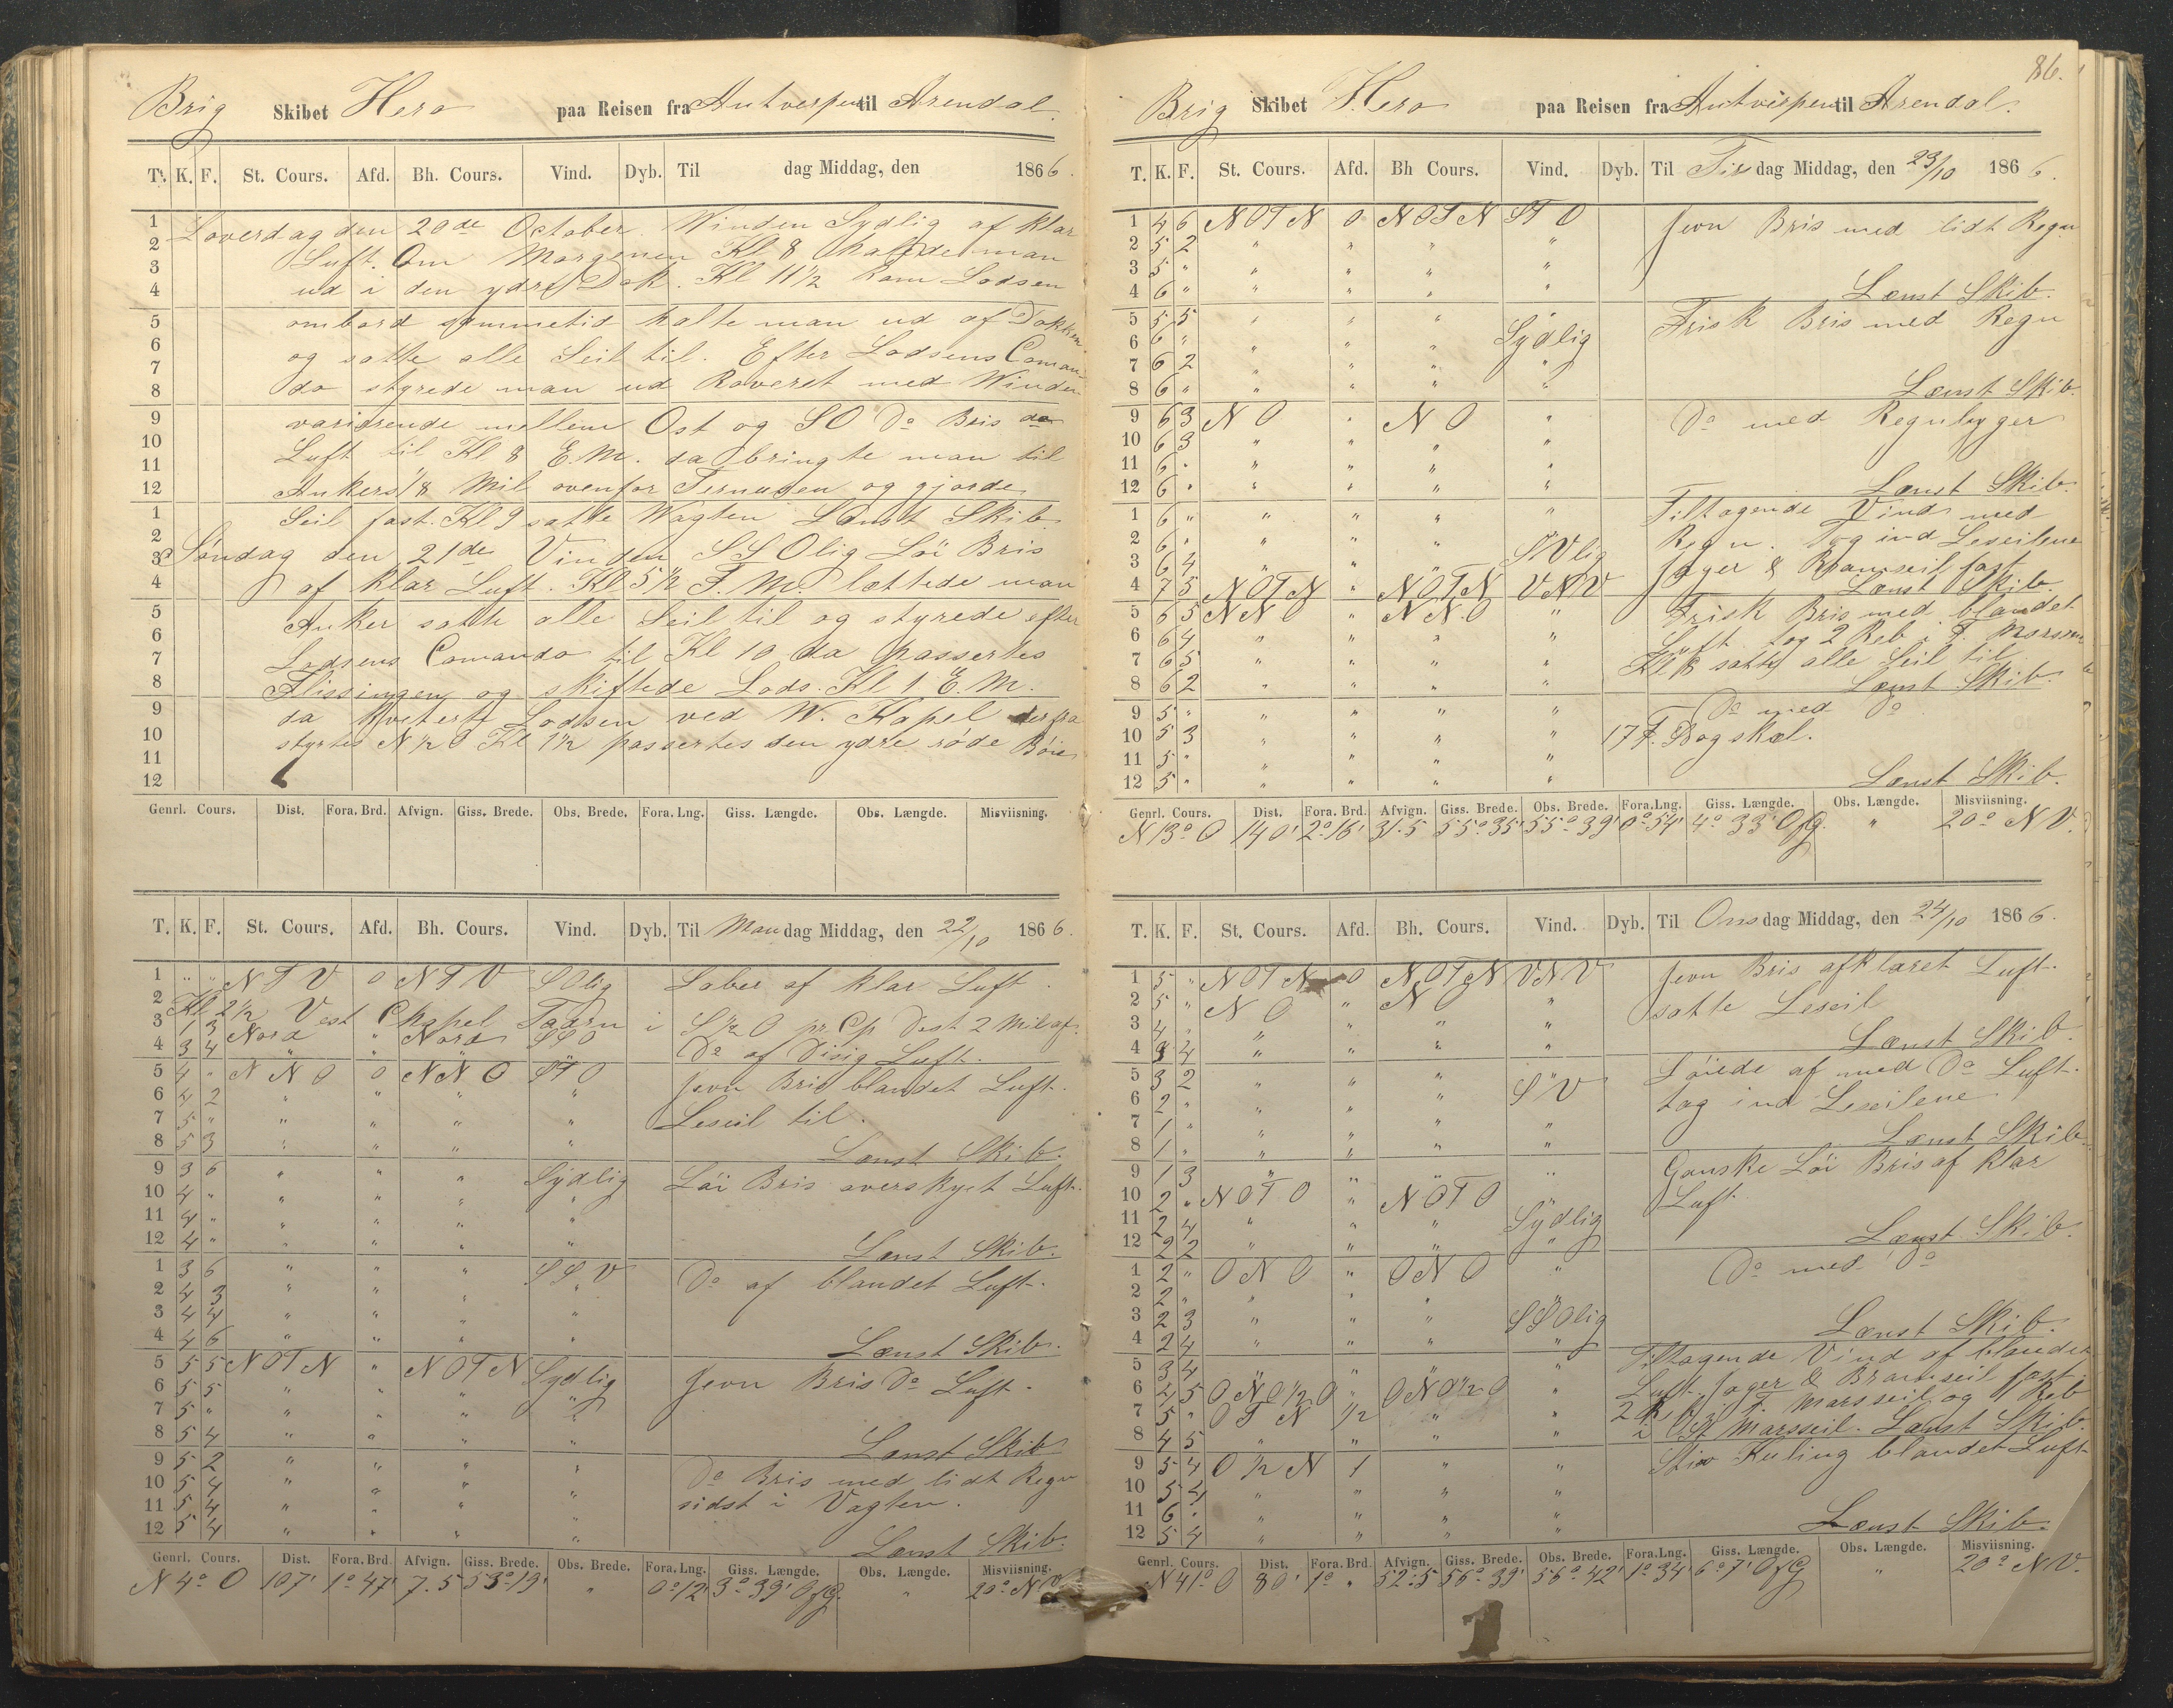 Brig Skibet Hero paa Reisen fra Antverpen til Arendal.
T. K. F. St. Cours. Afd. Bh. Cours. Vind. Dyb. Til dag Middag, den 1866.
1 Loverdag den 20de October. Winden Sydlig af klar
2 Luft. Om Morgenen Kl 8 halede man
3 ud i den ydre Dok. Kl 11 1/2 kom Lodsen
4
5 ombord sammetid halte man ud af Dokken
6 og satte alle Seil til. Efter Lodsens Coman-
7 do styrede man ud Raveret med Winden
8
9 varierende mellem Ost og SO Do Bris do
10 Luft til Kl 8 E.M. da bringte man til
11 Ankers 1/8 Mil ovenfor Ternusen og gjorde
12
1 Seil fast. Kl 9 satte Wagten Lænst Skib
2 Søndag den 21de Vinden SSOlig Løi Bris
3 af klar Luft. Kl 5 1/2 F.M. lettede man
4
5 Anker satte alle Seil til og styrede efter
6 Lodsens Comando til Kl 10 da passertes
7 Flissingen og skiftede Lods. Kl 1 E.M.
8
9 da kviterte Lodsen ved W. Kapel derfra
10 styrtes N 1/2 O Kl 1 1/2 passertes den ydre røde Bøie
11
12
Genrl. Cours. Dist. Fora. Brd. Afvign. Giss. Brede. Obs. Brede. Fora. Lng. Giss. Længde. Obs. Længde. Misviisning.
T. K. F. St. Cours. Afd. Bh. Cours. Vind. Dyb. Til Mandag Middag, den 22/10 1866.
1 " " N T V 0 N T V SOlig Laber af klar Luft.
2 Kl 2 1/2 Vest Chapel Taarn i S 1/2 O pr. Cp Dist 2 Mil af.
3 1 3 Nord " Nord SSO
4 3 4 " " " Do af Disig Luft.
5 4 " N N O 0 N N O S T O Jevn Bris blandet Luft.
6 4 2 " " " "
7 5 " " " " " Leseil til.
8 5 3 " " " " Lænst Skib.
9 3 6 " " " Sydlig Løi Bris overskyet Luft.
10 4 " " " " "
11 4 " " " " "
12 4 " " " " " Lænst Skib.
1 3 6 " " " S S V Do af blandet Luft.
2 4 3 " " " "
3 4 4 " " " "
4 4 6 " " " " Lænst Skib.
5 5 5 N O T N " N O T N Sydlig Jevn Bris Do Luft.
6 5 5 " " " "
7 5 " " " " "
8 5 4 " " " " Lænst Skib
9 5 2 " " " " Do Bris med lidt Regn
10 5 4 " " " " sidst i Vagten.
11 5 4 " " "
12 5 4 " " " " Lænst Skib.
Genrl. Cours. Dist. Fora. Brd. Afvign. Giss. Brede. Obs. Brede. Fora. Lng. Giss. Længde. Obs. Længde. Misviisning.
N 4° O 107' 1° 47' 7.5 53° 19' " 0° 12' 3° 39' O f G. " 20° N V.
86.
Brig Skibet Hero paa Reisen fra Antverpen til Arendal.
T. K. F. St. Cours. Afd. Bh Cours. Vind. Dyb. Til Tirsdag Middag, den 23/10 1866.
1 4 6 N O T N 0 N O T N S T O Jevn Bris med lidt Regn
2 5 2 " " " "
3 5 " " " " "
4 6 " " " " " Lænst Skib.
5 5 5 " " " " Frisk Bris med Regn
6 6 " " " " Sydlig
7 6 2 " " " "
8 6 " " " " " Lænst Skib.
9 6 3 N O " N O " Do med Regnbyger
10 6 3 " " " "
11 6 " " " " "
12 6 " " " " " Lænst Skib.
1 6 " " " " " Tiltagende Vind med
2 6 " " " " Regn. Tog ind Leseilene
3 6 4 " " " S Vlig Jager & Bramseil fast
4 7 5 N O T N " N O T N V N V Lænst Skib.
5 6 5 N N O " N N O " Frisk Bris med blandet
6 6 4 " " " " Luft tog 2 Reb i F. Marsseil
7 6 5 " " " " Kl 8 satte alle Seil til
8 6 2 " " " " Lænst Skib.
9 5 " " " " " Do med Do
10 5 3 " " " " 17 F. Bogskæl.
11 5 " " " " "
12 5 " " " " " Lænst Skib.
Genrl. Cours. Dist. Fora. Brd. Afvign. Giss. Brede. Obs. Brede. Fora. Lng. Giss. Længde. Obs. Længde. Misviisning.
N 13° O 140' 2° 16' 31.5 55° 35' 55° 39' 0° 54' 4° 33' O f G. " 20° N V.
T. K. F. St. Cours. Afd. Bh. Cours. Vind. Dyb. Til Onsdag Middag, den 24/10 1866.
1 5 " N O T N 0 N O T N V N V Jevn Bris afklaret Luft.
2 5 " N O " N O " satte Leseil
3 4 " " " " "
4 3 4 " " " " Lænst Skib.
5 3 2 " " " " Løiede af med Do Luft.
6 2 " " " " S V tog ind Leseilene.
7 1 " " " " "
8 1 " " " " " Lænst Skib.
9 1 3 " " " " Ganske Løi Bris af klar
10 2 " N O T O " N O T O Luft.
11 2 4 " " " Sydlig
12 2 2 " " " " Lænst Skib.
1 2 " O N O " O N O " Do med Do
2 2 " " " " "
3 2 3 " " " S S Olig
4 2 4 " " " " Lænst Skib.
5 3 4 " " " " Tiltagende Vind af blandet
6 4 5 O N O 1/2 O " O N O 1/2 O " Luft. Jager & Bramseil fast
7 5 " O T N 1/2 " " 2 R. i F. Marsseil og 1 Reb
8 4 5 " " " " i St Marsseil. Lænst Skib.
9 5 4 O 1/2 N 1 " " Stiv Kuling blandet Luft
10 5 4 " " " "
11 6 " " " " "
12 5 4 " " " " Lænst Skib.
Genrl. Cours. Dist. Fora. Brd. Afvign. Giss. Brede. Obs. Brede. Fora. Lng. Giss. Længde. Obs. Længde. Misviisning.
N 41° O 80' 1° " 52.5 56° 39' 56° 42' 1° 34' 6° 7' O f G " 20° N V.
1